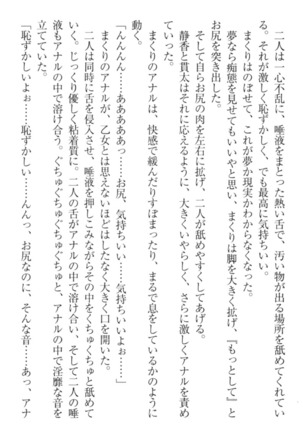 二人は一心不乱に、唾液をまとった舌で、汚い物が出る場所を舐めてくれてい
る。それが激しく恥ずかしく、でも最高に気持ちいい。
まくりはのぼせて、これが夢か現実かわからなくなった。
夢なら痴態を見せてもいいやと思い、まくりは脚を大きく拡げ、『もっとして』と
お尻を突き出した。
そして自らお尻の肉を左右に拡げ、二人が舐めやすくしてあげる。
静香と貫太はそれに応えるように、大きくいやらしく、さらに激しくアナルを責め
ていった。
まくりのアナルは、快感で緩んだりすぼまったり、まるで息をしているかのように
動く。
「んんんん……ああああああっ……お尻、気持ちいい……気持ちいいよぉ……」
まくりのアナルが、乙女とは思えないほどはしたなく大きく口を開いた。
二人は同時に舌を侵入させ、唾液を押しこみながらその中をくちゅくちゅと舐めて
いく。じっくり優しく粘着質に。二人の舌がアナルの中で溶け合い、そして二人の唾
液もアナルの中で溶け合う。ぐちゅぐちゅぐちゅぐちゅと、アナルの中で淫靡な音を
立てていた。
「恥ずかしいよぉ……恥ずかしい……んんっ、お尻なのに、そんな音……あっ、アナ